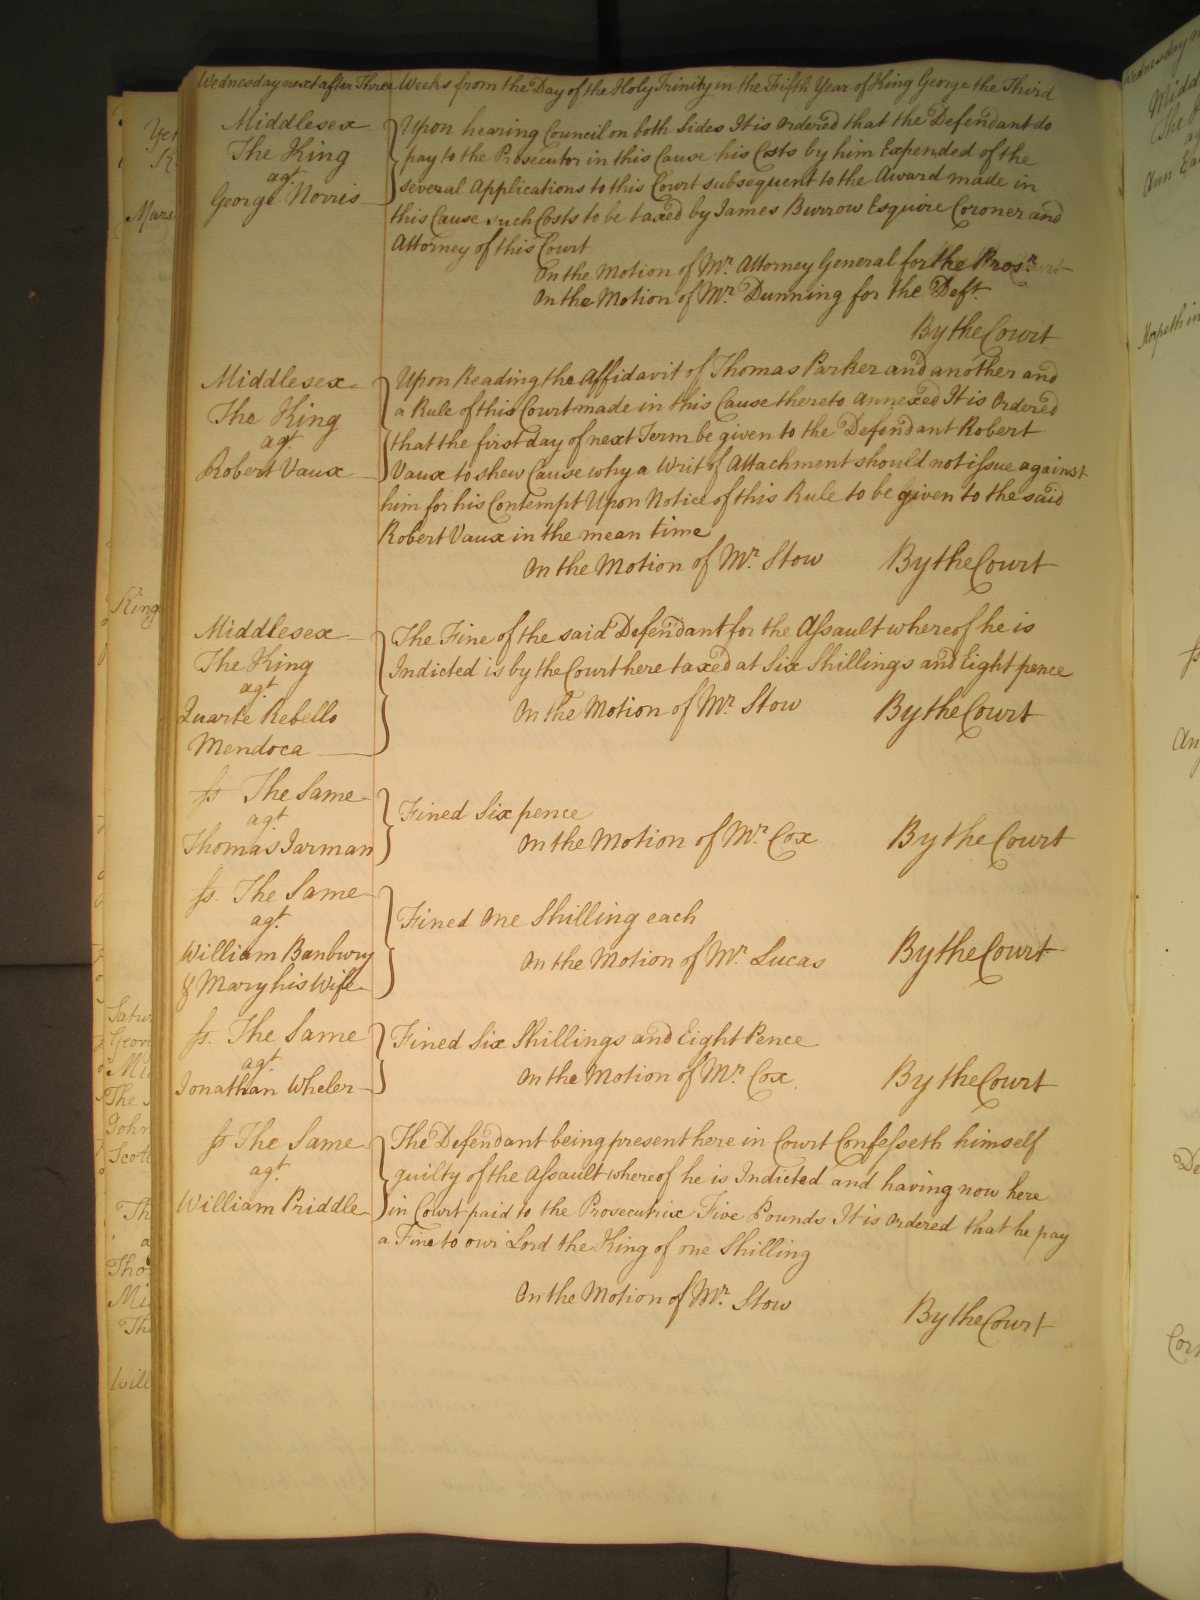 Wednesday next after Three Weeks from the Day of the Holy Trinity in the Fifth Year of King George the Third
Middlesex
The King
agt.
George Norris
Upon hearing Council on both Sides It is Ordered that the Defendant do
pay to the Prosecutor in this Cause his Costs by him Expended of the
several Applications to this Court subsequent to the Award made in
this Cause such Costs to be taxed by James Burrow Esquire Coroner and
Attorney of this Court
On the Motion of Mr. Attorney General for the Prosr.
On the Motion of Mr. Dunning for the Deft.
By the Court
Middlesex
The King
agt
Robert Vaux
Upon Reading the Affidavit of Thomas Parker and another and
a Rule of this Court made in this Cause thereto Annexed It is Ordered
that the first day of next Term be given to the Defendant Robert
Vaux to shew Cause why a Writ of Attachment should not issue against
him for his Contempt Upon Notice of this Rule to be given to the said
Robert Vaux in the mean time
On the Motion of Mr. Stow By the Court
Middlesex
The King
agt.
Duarte Rebello
Mendoca
The Fine of the said Defendant for the Assault whereof he is
Indicted is by the Court here taxed at Six Shillings and Eight pence
On the Motion of Mr. Stow By the Court
ss The Same
agt.
Thomas Jarman
Fined Six pence
On the Motion of Mr. Cox By the Court
ss. The Same
agt.
William Banbury
& Mary his Wife
Fined One Shilling each
On the Motion of Mr. Lucas By the Court
ss. The Same
agt.
Jonathan Wheler
Fined Six Shillings and Eight Pence
On the Motion of Mr. Cox. By the Court
ss The Same
agt.
William Priddle
The Defendant being present here in Court Confesseth himself
guilty of the Assault whereof he is Indicted and having now here
in Court paid to the Prosecutrix Five Pounds It is Ordered that he pay
a Fine to our Lord the King of one Shilling
On the Motion of Mr. Stow
By the Court